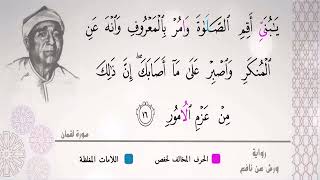 يَٰبُنَيِّ أَقِمِ اِ۬لصَّلَوٰةَ وَامُرْ بِالْمَعْرُوفِ وَانْهَ عَنِ
اِ۬لْمُنكَرِ وَاصْبِرْ عَلَىٰ مَآ أَصَابَكَۖ إِنَّ ذَٰلِكَ
مِنْ عَزْمِ اِ۬لُامُورِ ١٦
سورة لقمان
رواية
ورش عن نافع
الحرف المخالف لحفص
اللامات المغلظة